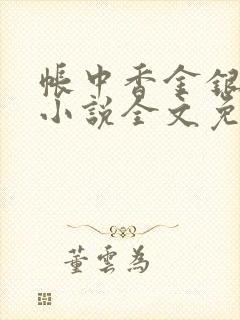 帳中香金銀
小說全文免
董雲為